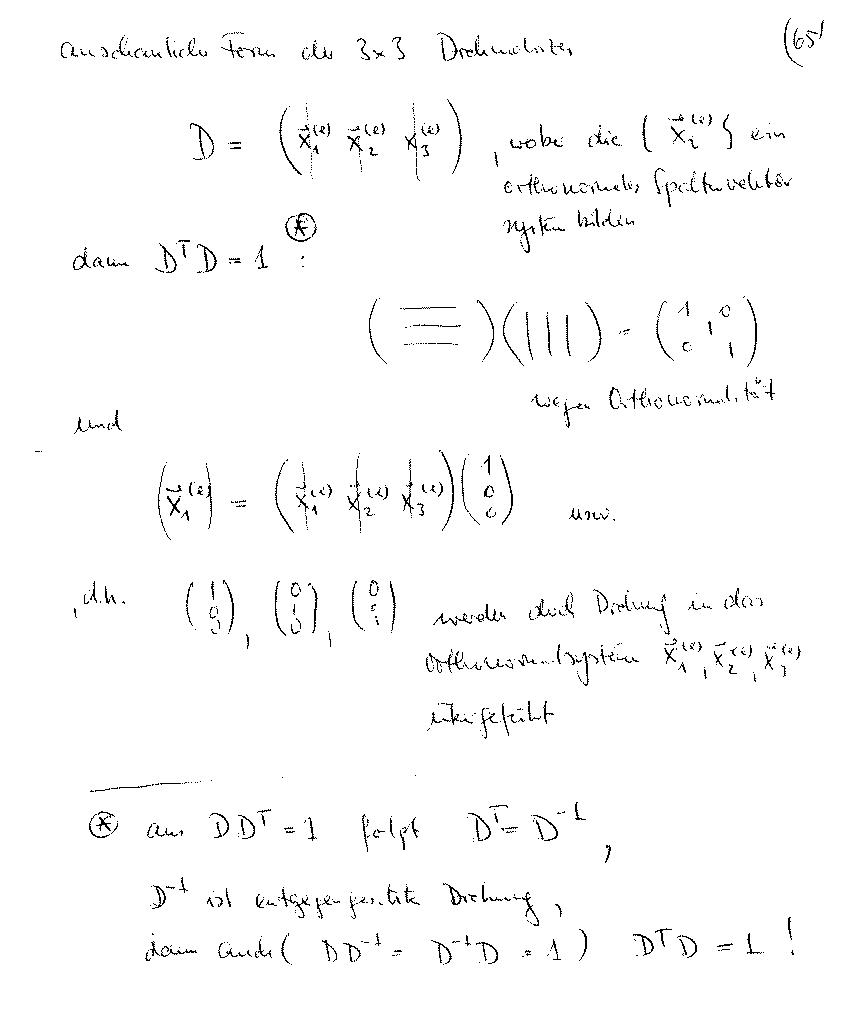 anschauliche Form der 3x3 Drehmatrix (65)
D = ( x⃗₁⁽ᵉ⁾ x⃗₂⁽ᵉ⁾ x₃⁽ᵉ⁾ ) , wobei die { x⃗ᵢ⁽ᵉ⁾ } ein
orthonormales Spaltenvektor
system bilden
dann DᵀD = 1 ⊛ :
( ≡ ) ( ||| ) = ( 1 0 1 0 1 )
wegen Orthonormalität
und
( x⃗₁⁽ᵉ⁾ ) = ( x⃗₁⁽ᵉ⁾ x⃗₂⁽ᵉ⁾ x⃗₃⁽ᵉ⁾ ) ( 1 0 0 ) usw.
, d.h. ( 1 0 0 ) , ( 0 1 0 ) , ( 0 0 1 ) werden durch Drehung in das
Orthonormalsystem x⃗₁⁽ᵉ⁾, x⃗₂⁽ᵉ⁾, x⃗₃⁽ᵉ⁾
übergeführt
⊛ aus DDᵀ = 1 folgt Dᵀ = D⁻¹ ,
D⁻¹ ist entgegengesetzte Drehung,
dann auch ( DD⁻¹ = D⁻¹D = 1 ) DᵀD = 1 !